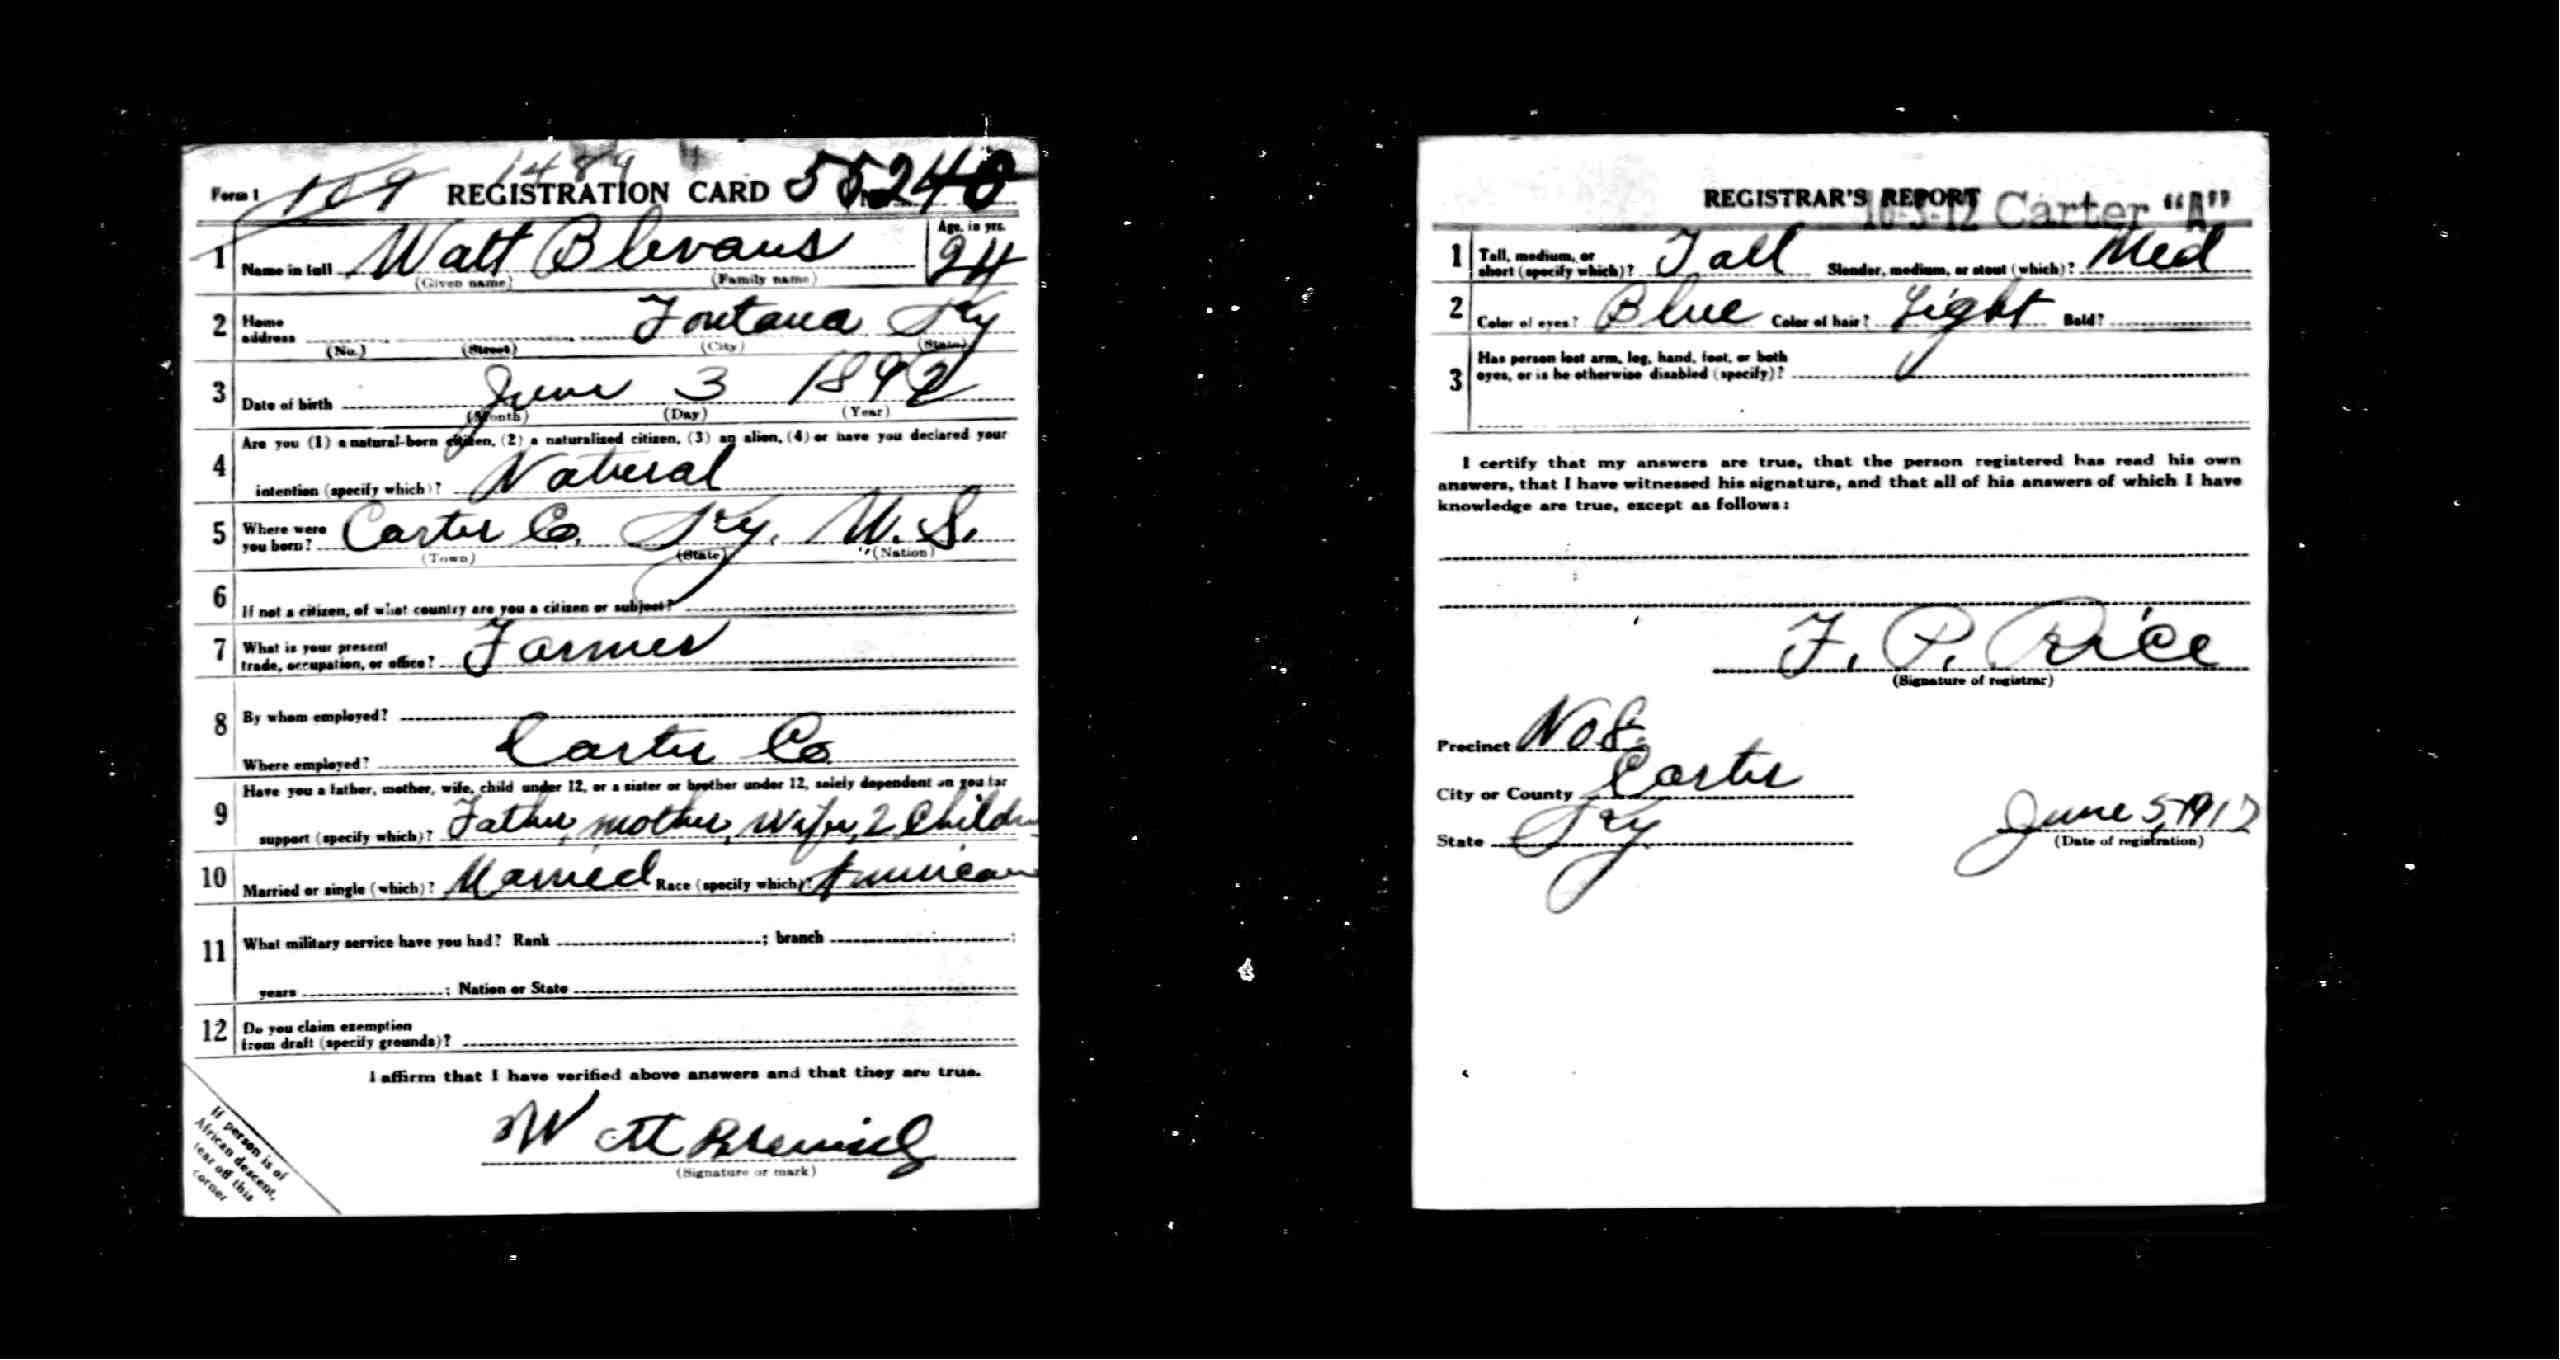 Form 1 109 1489 REGISTRATION CARD 55240
1 Name in full Watt Blevans Age, in yrs. 24
(Given name) (Family name)
2 Home address Fontana Ky
(No.) (Street) (City) (State)
3 Date of birth June 3 1892
(Month) (Day) (Year)
4 Are you (1) a natural-born citizen, (2) a naturalized citizen, (3) an alien, (4) or have you declared your
intention (specify which)? Natural
5 Where were you born? Carter Co. Ky. U.S.
(Town) (State) (Nation)
6 If not a citizen, of what country are you a citizen or subject?
7 What is your present
trade, occupation, or office? Farmer
8 By whom employed?
Where employed? Carter Co
9 Have you a father, mother, wife, child under 12, or a sister or brother under 12, solely dependent on you for
support (specify which)? Father, mother, Wife, 2 Children
10 Married or single (which)? Married Race (specify which)? American
11 What military service have you had? Rank ; branch ;
years ; Nation or State
12 Do you claim exemption
from draft (specify grounds)?
I affirm that I have verified above answers and that they are true.
Watt Blevins
(Signature or mark)
If person is of
African descent,
tear off this
corner
REGISTRAR'S REPORT
16-3-12 Carter "A"
1 Tall, medium, or
short (specify which)? Tall Slender, medium, or stout (which)? Med
2 Color of eyes? Blue Color of hair? Light Bald?
3 Has person lost arm, leg, hand, foot, or both
eyes, or is he otherwise disabled (specify)?
I certify that my answers are true, that the person registered has read his own
answers, that I have witnessed his signature, and that all of his answers of which I have
knowledge are true, except as follows:
F. P. Rice
(Signature of registrar)
Precinct No 8.
City or County Carter
State Ky June 5, 1917
(Date of registration)